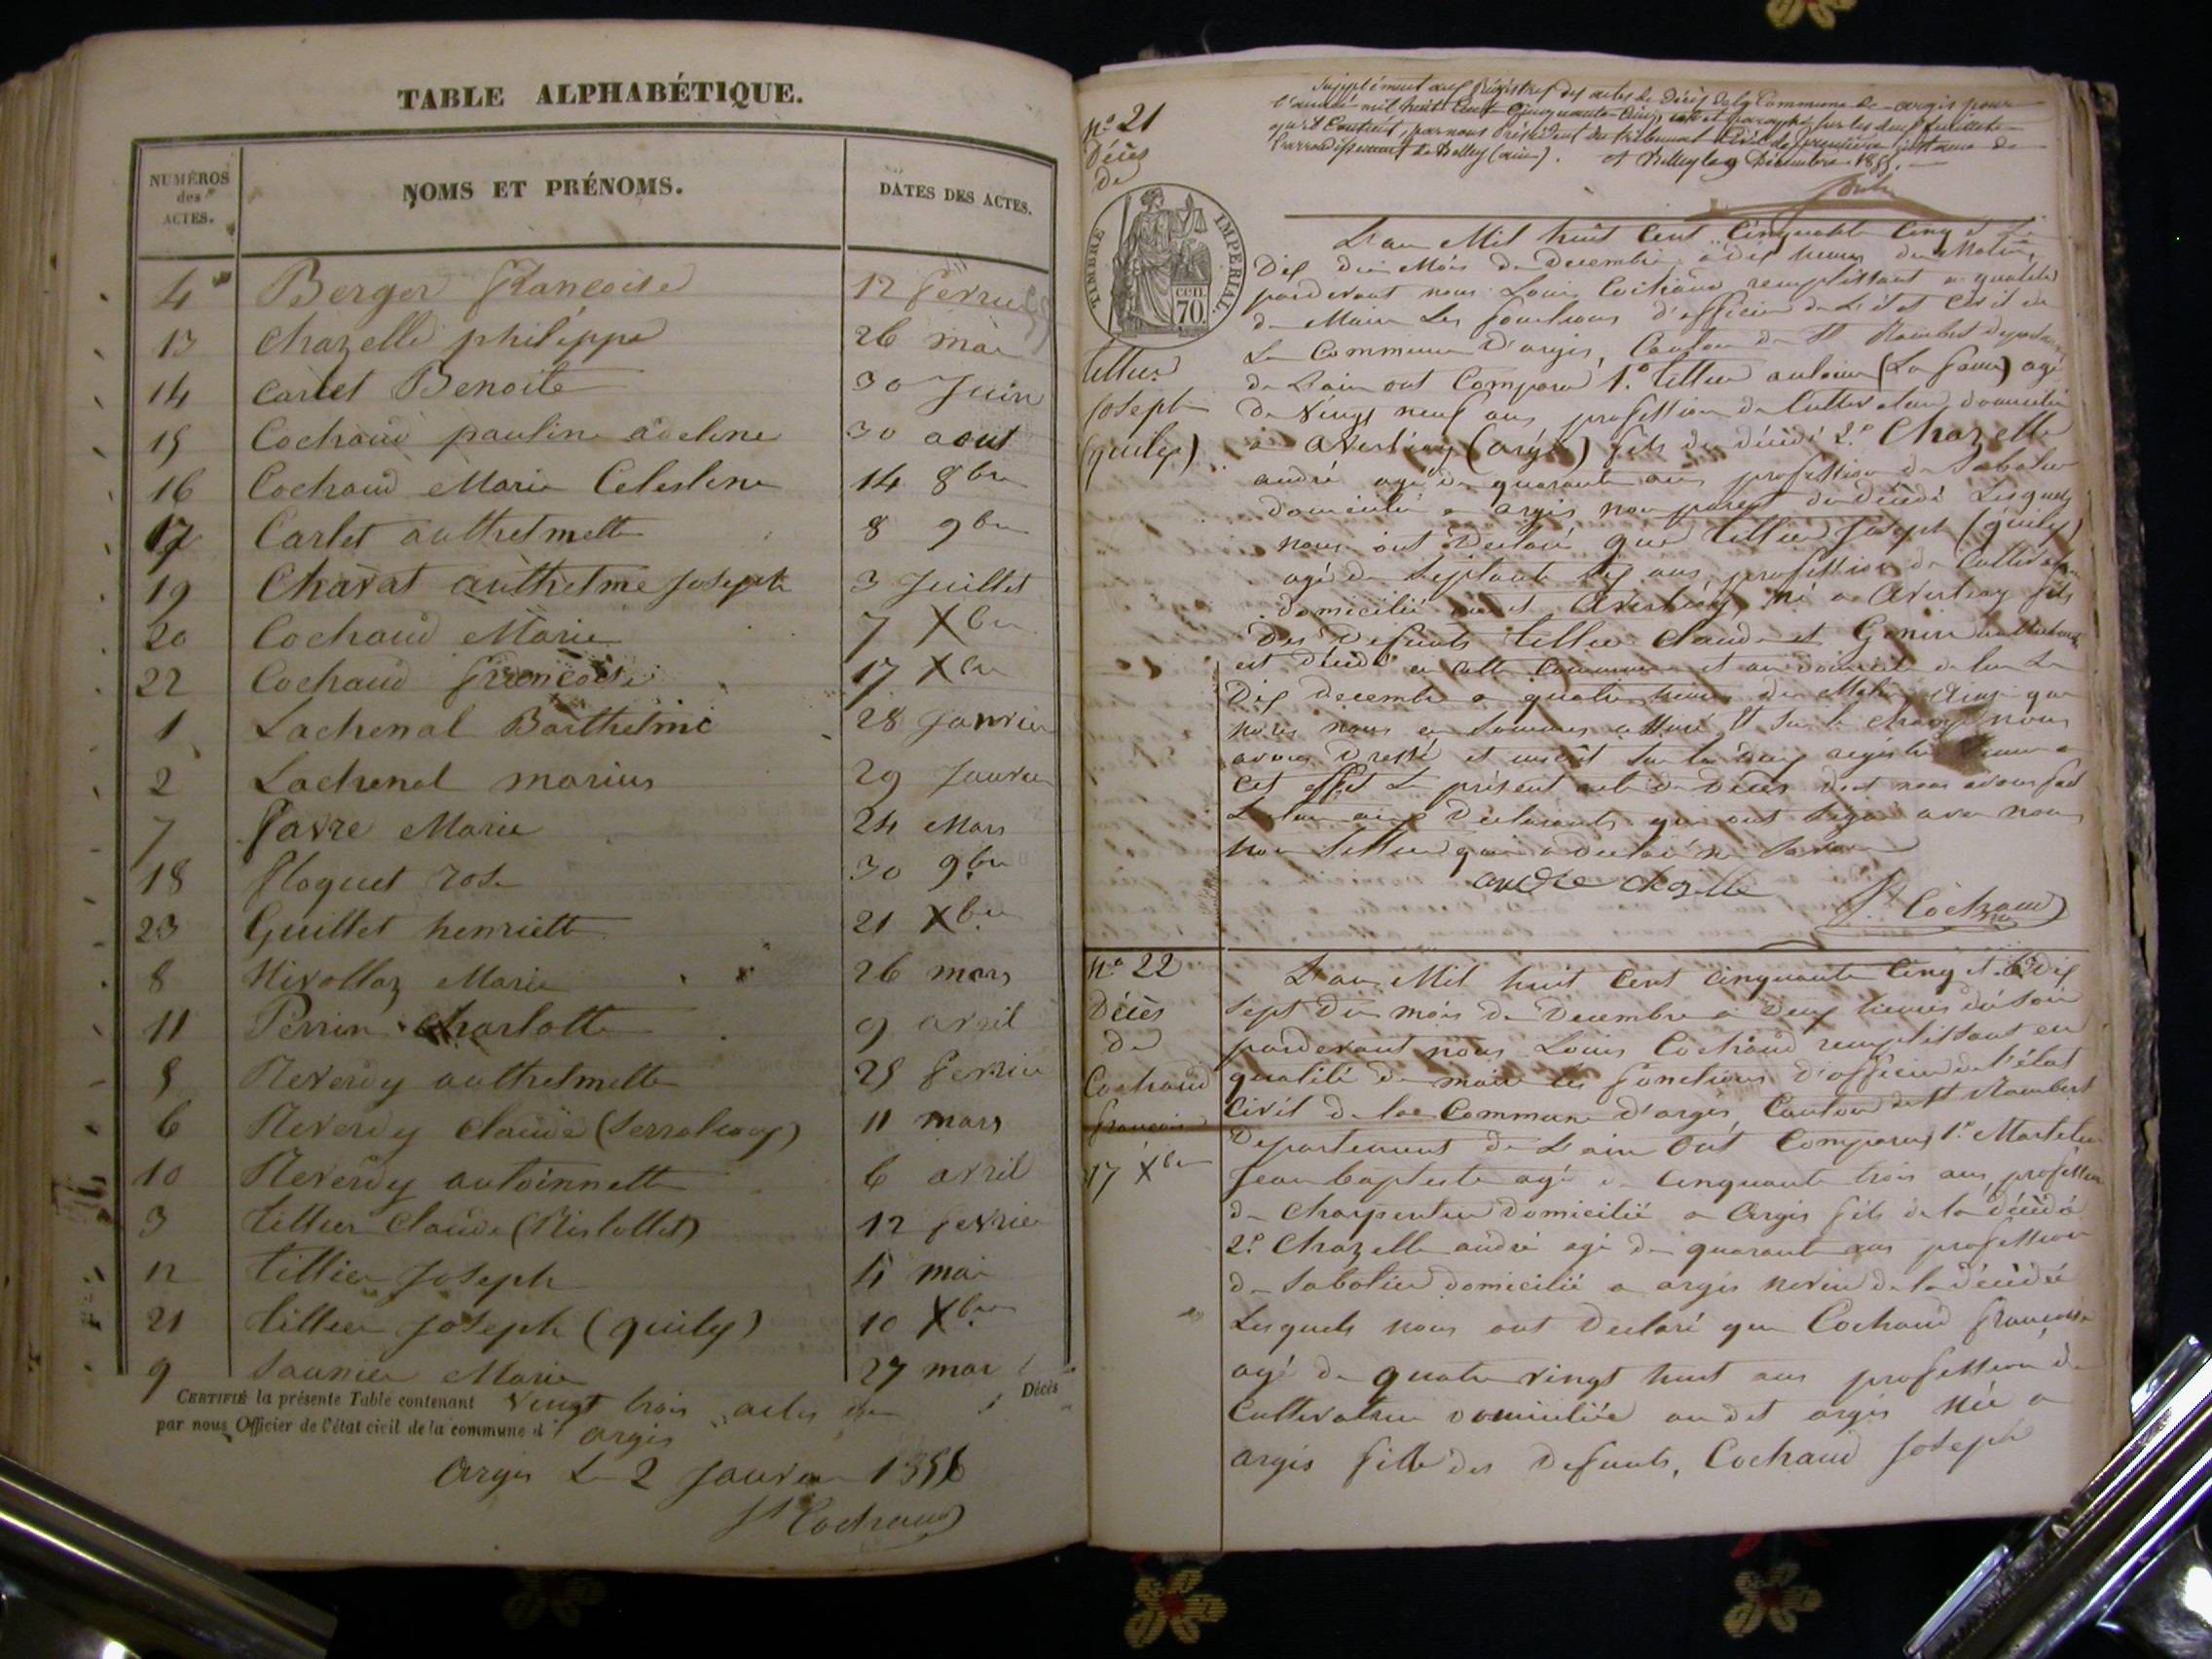 TABLE ALPHABÉTIQUE.
NUMÉROS des ACTES.
NOMS ET PRÉNOMS.
DATES DES ACTES.
4 Berger françoise 12 fevrier
13 Chazelle philippe 26 mai
14 Carlet Benoite 30 Juin
15 Cochaud pauline adeline 30 aout
16 Cochaud Marie Celestine 14 8bre
17 Carlet anthelmette 8 9bre
19 Charat anthelme Joseph 3 Juillet
20 Cochaud Marie 7 Xbre
22 Cochaud françoise 17 Xbre
1 Lachenal Barthelmie 28 Janvier
2 Lachenal marius 29 Janvier
7 favre Marie 24 Mars
18 floquet rose 30 9bre
23 Guillet henriette 21 Xbre
8 Nivollaz Marie 26 mars
11 Perrin Charlotte 9 avril
5 Reverdy anthelmette 25 fevrier
6 Reverdy Claude 11 mars
10 Reverdy antoinnette 6 avril
3 tillier Claude 12 fevrier
12 tillier Joseph 4 mai
21 tillier Joseph (quily) 10 Xbre
9 Saunier Marie 27 mar
CERTIFIÉ la présente Table contenant vingt trois actes de Décès
par nous Officier de l'état civil de la commune d'argis
Argis Le 2 Janvier 1856
Cochaud
Supplément aux Régistres des actes de Décès de la Commune de argis pour
l'année mil huit Cent Cinquante Cinq, coté et paraphé sur les deux feuillets
qu'il Contient, par nous Président du tribunal Civil de première instance de
l'arrondissement de Belley (ain). A Belley le 9 Décembre 1855.
n° 21
Décès
de
TIMBRE IMPERIAL
CEN. 70.
tillier
Joseph
(quily)
L'an Mil huit Cent Cinquante Cinq et le
Dix du Mois de Decembre à dix heures du Matin,
pardevant nous Louis Cochaud remplissant en qualité
de Maire Les fonctions d'officier de L'état Civil de
La Commune d'argis, Canton de St Rambert departement
de L'ain ont Comparu 1.° tillier antoine agé
de Vingt neuf ans profession de Cultivateur domicilié
a (argis) fils du décédé 2.° Chazelle
andré agé de quarante ans profession de Sabotier
domicilié a argis non parent du décédé Lesquels
nous ont Declaré que tillier Joseph (quily)
agé de Septante dix ans, profession de Cultivateur
domicilié né a fils
Des Defunts tillier Claude et Genin
est décédé en Cette Commune et au domicile de lui Le
Dix Decembre a quatre heures du Matin Ainsi que
nous nous en Sommes assuré Et sur le Champ nous
avons Dressé et inscrit Sur les deux registres tenus a
Cet effet Le présent acte de Décès dont nous avons fait
Lecture aux Declarants qui ont Signé avec nous
non tillier qui a declaré ne Savoir
andré chazelle
Cochaud
n° 22
Décès
de
Cochaud
françoise
17 Xbre
L'an Mil huit Cent cinquante Cinq et le Dix
Sept Du mois de Decembre a Deux heures du Soir
pardevant nous Louis Cochaud remplissant en
qualité de maire les fonctions d'officier de l'état
Civil de la Commune d'argis, Canton de St Rambert
Departement de L'ain Ont Comparus 1.°
Jean baptiste agé de Cinquante trois ans, profession
de Charpentier Domicilié a Argis fils de la décédé
2.° Chazelle andré agé de quarante ans profession
de Sabotier Domicilié a argis neveu de la décédée
Lesquels nous ont Declaré que Cochaud françoise
agé de quatre vingt huit ans profession de
Cultivatrice domiciliée au dit argis Née a
argis fille des Defunts, Cochaud Joseph